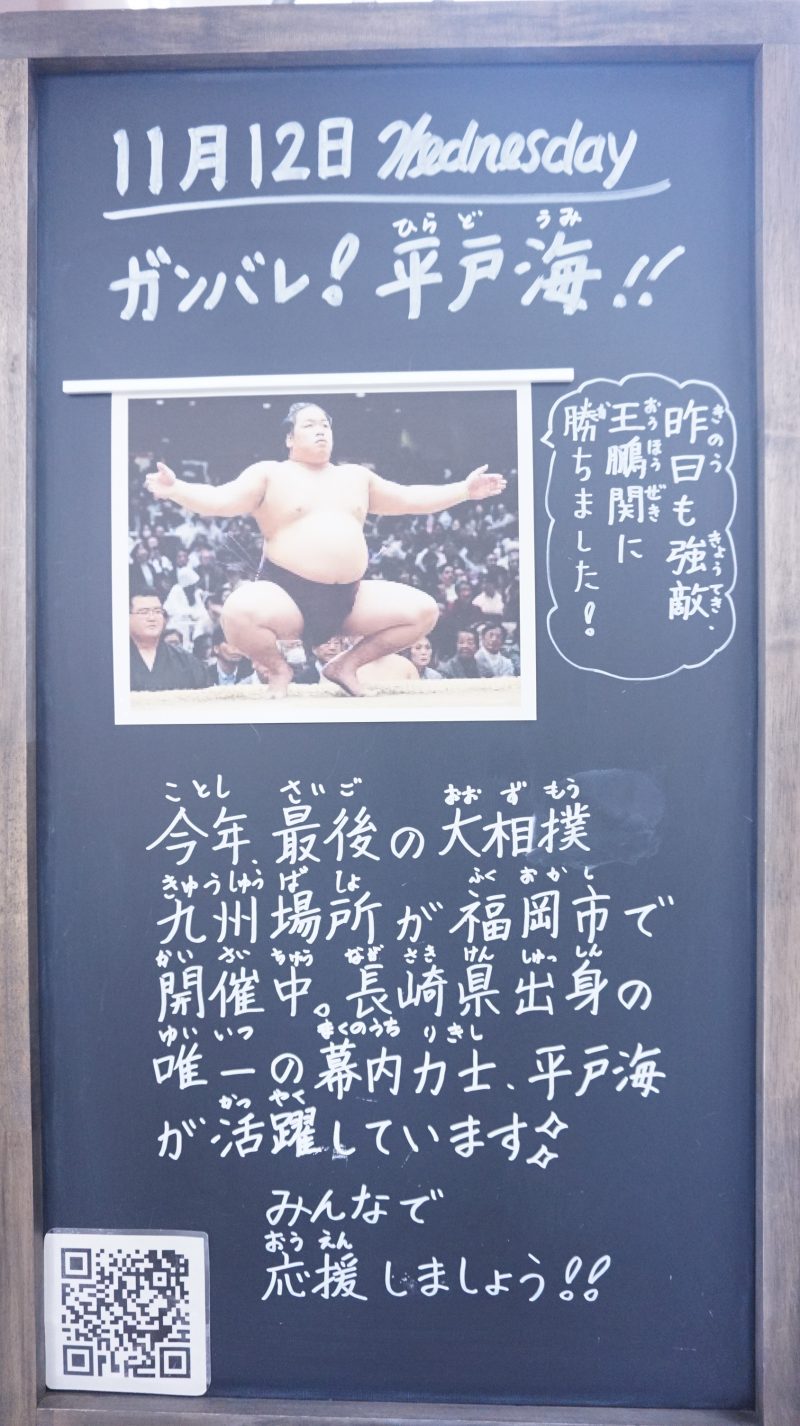 11月12日 Wednesday
ガンバレ！平戸海!!
昨日も強敵、
王鵬関に
勝ちました！
今年、最後の大相撲
九州場所が福岡市で
開催中。長崎県出身の
唯一の幕内力士、平戸海
が活躍しています
みんなで
応援しましょう!!